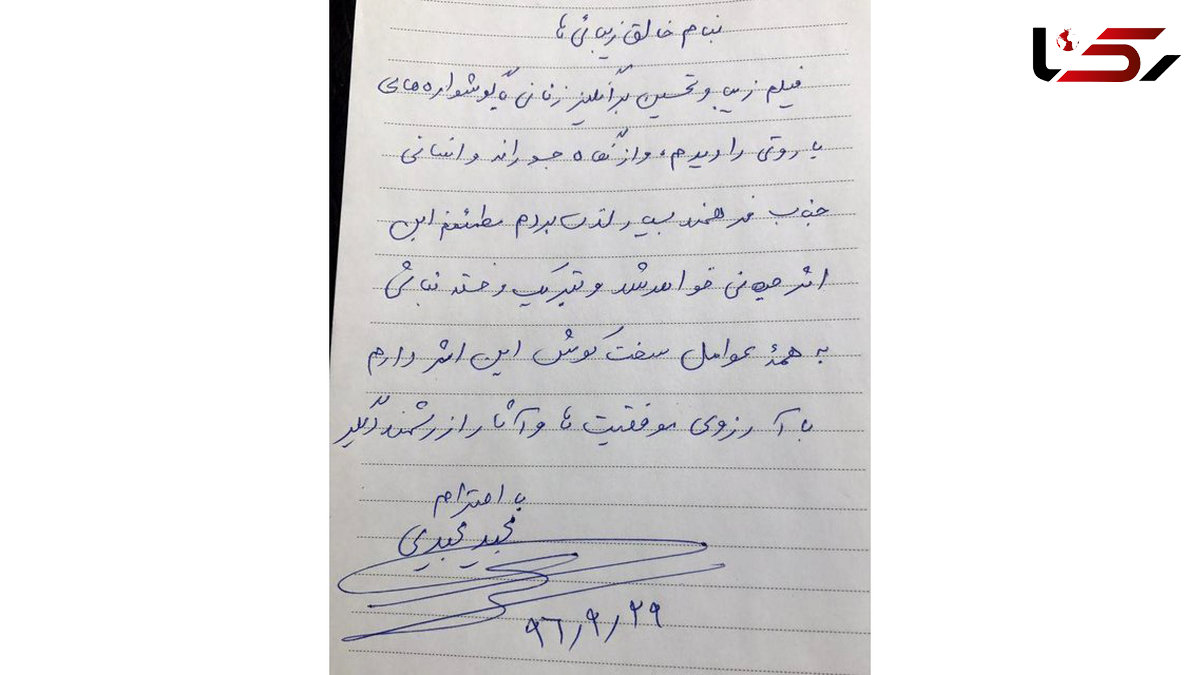 رکنا
بنام خالق زیبائی ها
فیلم زیبا و تحسین برانگیز زنانی با گوشواره های
باروتی را دیدم، و از نگاه جسورانه و انسانی
جناب فرهمند بسیار لذت بردم مطمئنم این
اثر جهانی خواهد شد و تبریک و خسته نباشی
به همهٔ عوامل سخت کوش این اثر دارم
با آرزوی موفقیت ها و آثار ارزشمند دیگر
با احترام
مجید مجیدی
۹۶/۹/۲۹